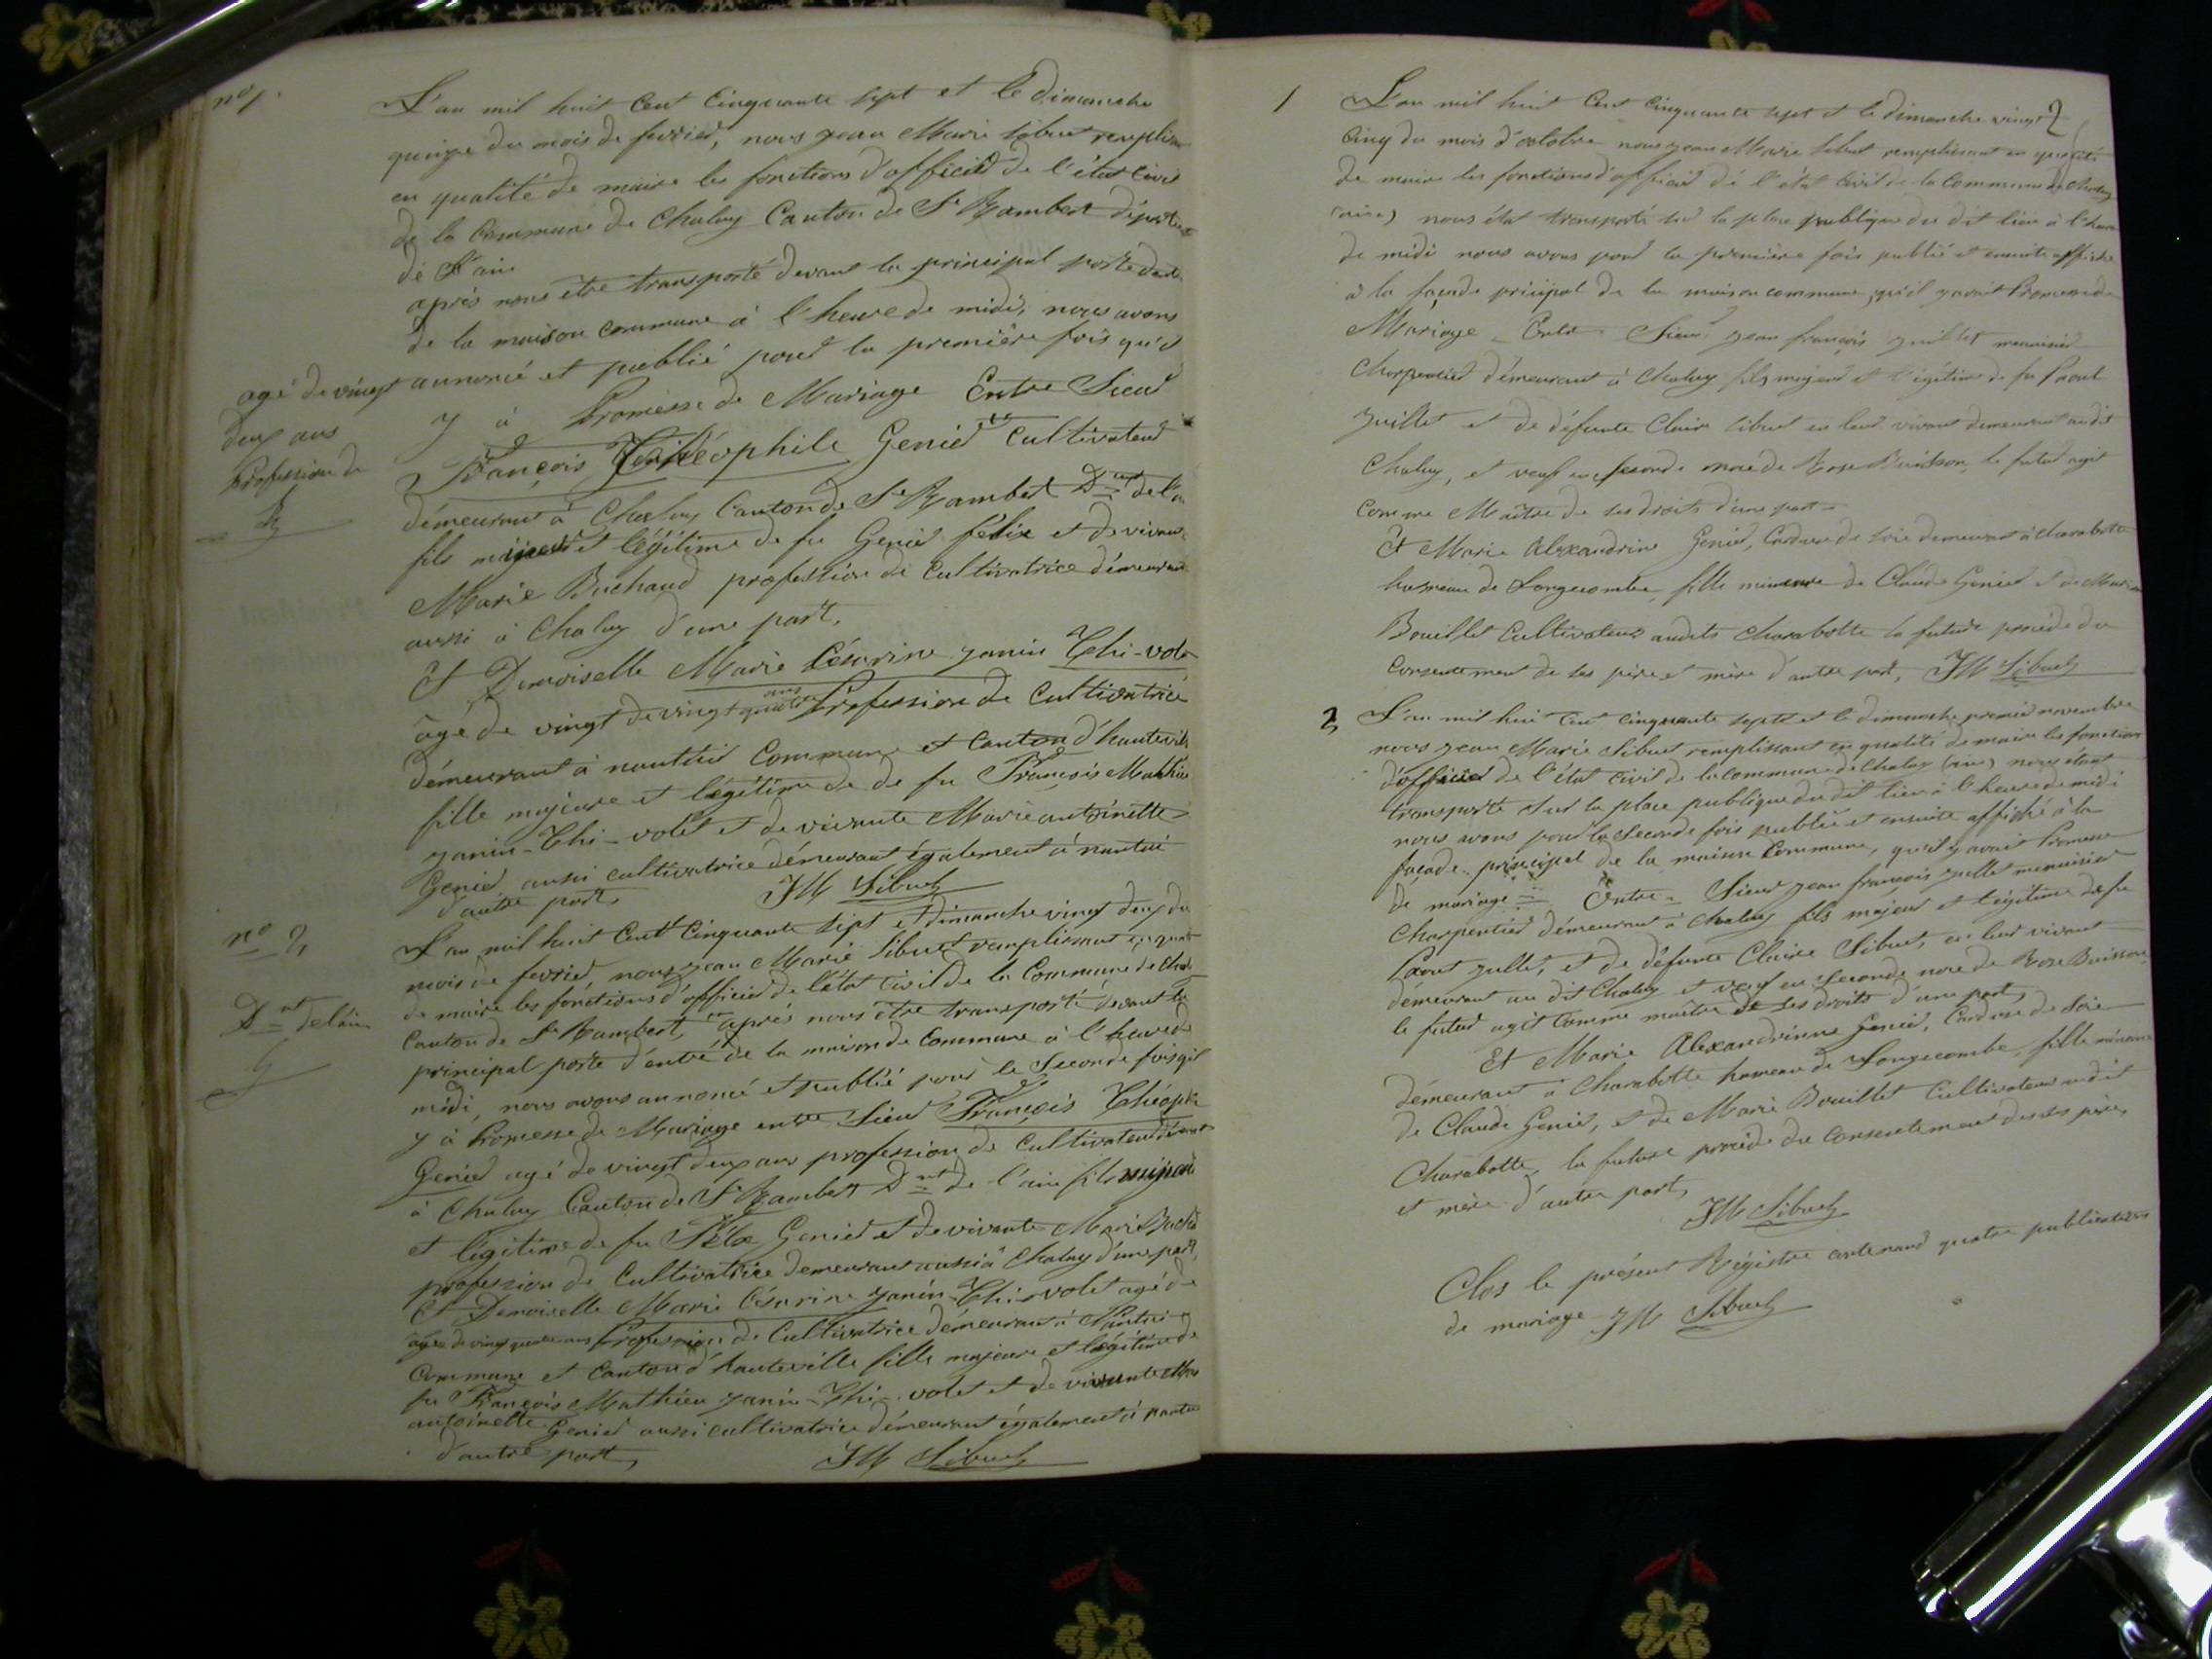 no 1.
L'an mil huit Cent Cinquante sept et le dimanche
quinze du mois de fevrier, nous jean Marie Sibuet
en qualité de maire les fonctions d'officier de l'état Civil
de la Commune de Chaley Canton de St Rambert
de l'ain
après nous être transporté devant la principal porte
de la maison commune à l'heure de midi, nous avons
annoncé et publié pour la première fois qu'il
agé de vingt
deux ans
Profession de
y à Promesse de Mariage Entre Sieur
François Théophile Genier Cultivateur
démeurant à Chaley Canton de St Rambert Dnt de l'ain
fils majeur et légitime de fu Genier félix et de vivante
Marie Buchard profession de Cultivatrice démeurant
aussi à Chaley d'une part,
Et Demoiselle Marie Césarine janin Thi-volet
âgé de vingt de vingt quatre ans Profession de Cultivatrice
démeurant à nantui Commune et Canton d'hauteville
fille majeure et légétime de de fu François Mathieu
janin-Thi-volet et de vivante Marie antoinette
Genier aussi cultivatrice démeurant également à nantui
d'autre part, JM Sibuet
no 2
L'an mil huit Cent Cinquante sept et dimanche vingt deux du
mois de fevrier, nous jean Marie Sibuet remplissant en
de maire les fonctions d'officier de l'état Civil de la Commune de
Dnt de l'ain
Canton de St Rambert, après nous être transporté devant la
principal porte d'entré de la maison de Commune à l'heure de
midi, nous avons annoncé et publié pour la Seconde fois
y à Promesse de Mariage entre Sieur François Théophile
Genier agé de vingt deux ans profession de Cultivateur
à Chaley Canton de St Rambert Dnt de l'ain fils majeur
et légitime de fu Félix Genier et de vivante Marie
profession de Cultivatrice demeurant aussi à Chaley d'une part,
Et Demoiselle Marie Césarine janin-Thi-volet agé de
agée de vingt quatre ans Profession de Cultivatrice démeurant à
Commune et Canton d'hauteville fille majeure et légitime de
fu François Mathieu janin-Thi-volet et de vivante
antoinette Genier aussi cultivatrice démeurant également à
d'autre part, JM Sibuet
1 L'an mil huit Cent Cinquante sept et le dimanche vingt
Cinq du mois d'octobre nous jean Marie Sibuet remplissant en qualité
de maire les fonctions d'officier dé l'état Civil de la Commune de Chaley
(ain) nous étant transporté sur la place publique du dit lieu à l'heure
de midi nous avons pour la première fois publié et ensuite affiché
à la façade principal de la maison commune, qu'il y avait Promesse de
Mariage Entre Sieur jean françois juillet menuisier
Charpentier démeurant à Chaley fils majeur et légitime de fu
juillet et de défunte Claire Sibuet en leur vivant demeurant audit
Chaley, et veuf en seconde noce de Rose Buisson, le futur agit
Comme Maître de ses droits d'une part
Et Marie Alexandrine Genier, Cardeuse de soie demeurant à Charabotte
hameau de Longecombe, fille mineure de Claude Genier et de
Bouillet Cultivateurs audit Charabotte la future procède du
Consentement de ses père et mère d'autre part, JM Sibuet
2 L'an mil huit Cent cinquante sept et le dimanche premier novembre
nous jean Marie Sibuet remplissant en qualité de maire les fonctions
d'officier de l'état civil de la commune de Chaley (ain) nous étant
transporté sur la place publique du dit lieu à l'heure de midi
nous avons pour la Seconde fois publié et ensuite affiché à la
façade principal de la maison Commune, qu'il y avait Promesse
de mariage Entre Sieur jean françois juillet menuisier
Charpentier démeurant à Chaley fils majeur et légitime de fu
juillet, et de défunte Claire Sibuet, en leur vivant
démeurant au dit Chaley et veuf en Seconde noce de Rose Buisson
le futur agit Comme maître de ses droits d'une part,
Et Marie Alexandrinne Genier, Cardeuse de soie
démeurant à Charabotte hameau de Longecombe, fille mineure
de Claude Genier, et de Marie Bouillet Cultivateurs audit
Charabotte, la future procède du Consentement de ses père,
et mère d'autre part,
JM Sibuet
Clos le présent Régistre contenand quatre publications
de mariage JM Sibuet